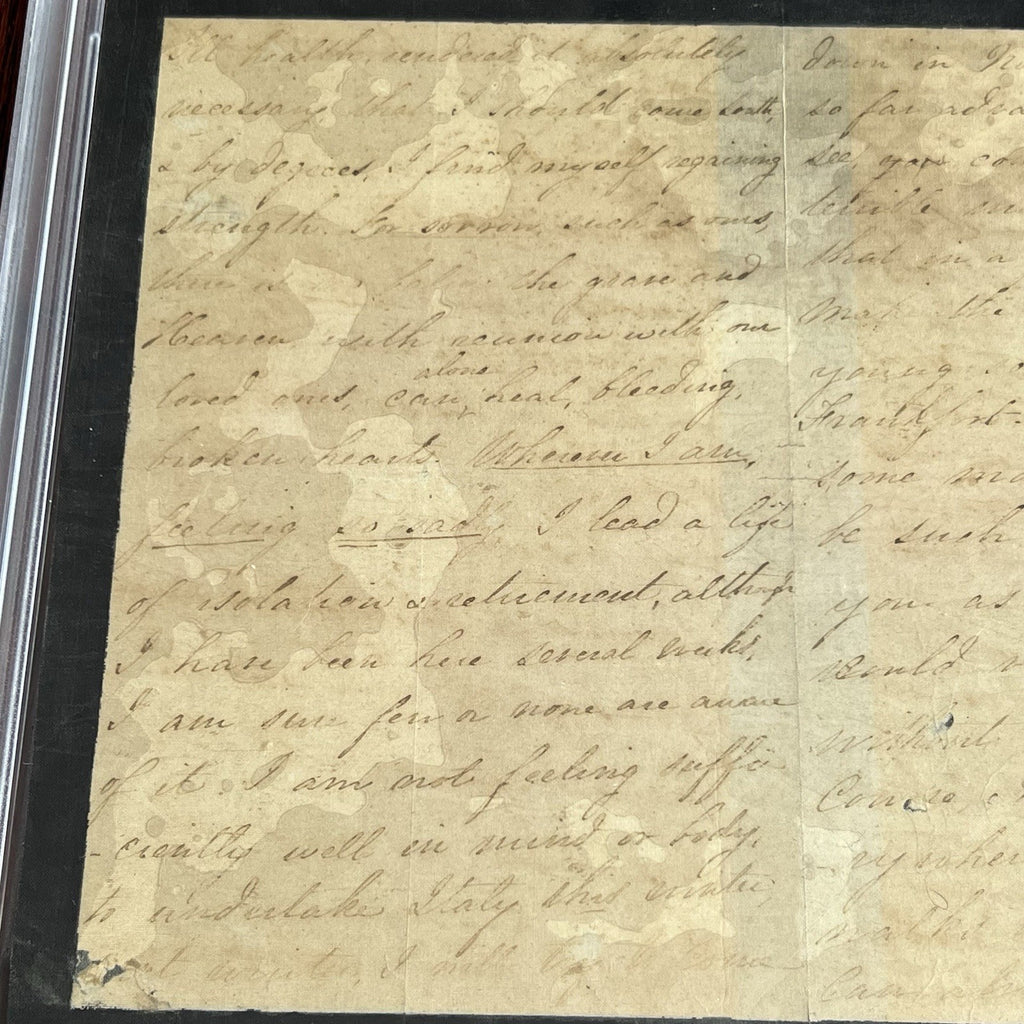 Ill health, rendered it absolutely
necessary that I should come South,
& by degrees, I find myself regaining
strength. For sorrow, such as ours,
there is no balm, the grave and
Heaven with reunion with our
loved ones, can alone heal, bleeding,
broken hearts. Wherever I am,
feeling so sadly, I lead a life
of isolation & retirement, although
I have been here several weeks,
I am sure few or none are aware
of it. I am not feeling suffi
-ciently well in mind or body,
to undertake Italy this winter,
winter, I will come
down in
so far
see, you
terrible
that in a
make the
young
Frankfort-
some
be such
you as
would
without
Course,
-ry where